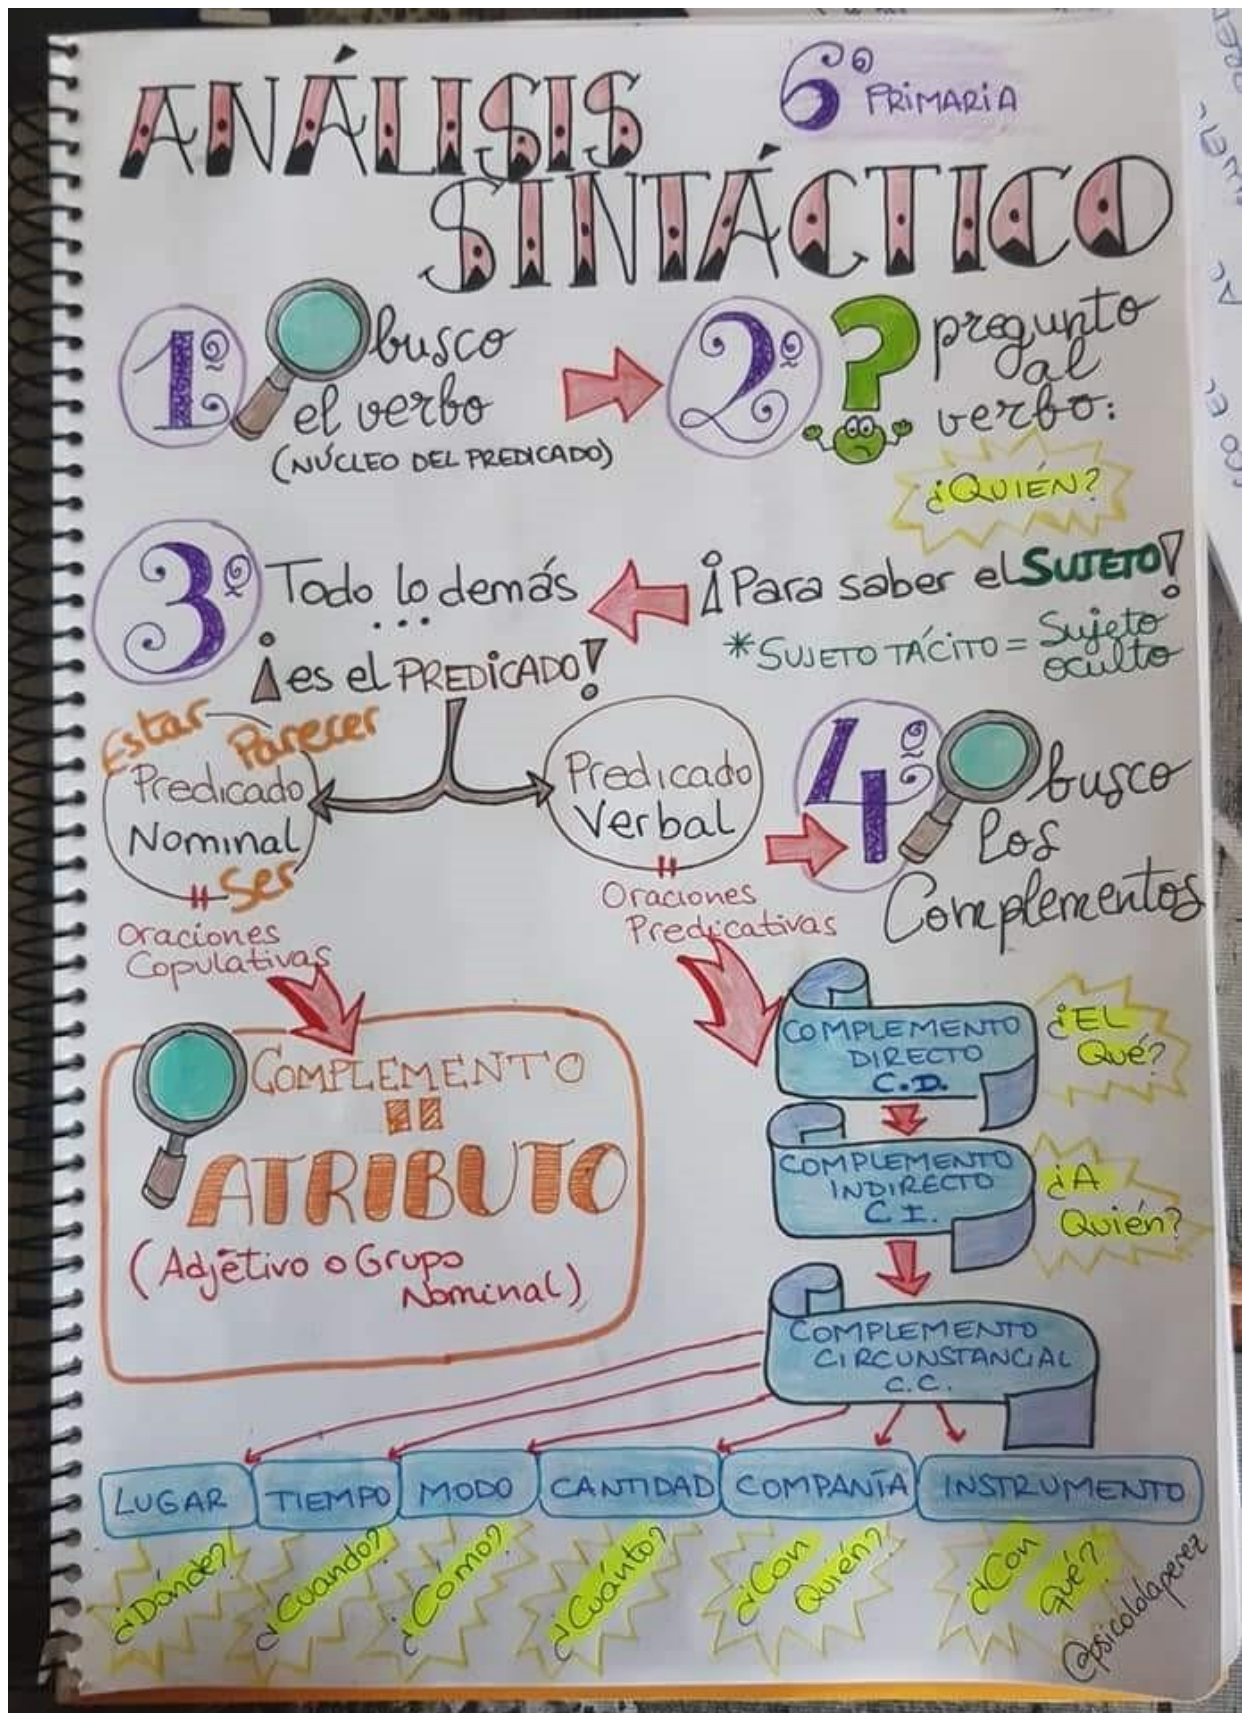 6º PRIMARIA
ANÁLISIS
SINTÁCTICO
1º busco
el verbo
(NÚCLEO DEL PREDICADO)
2º ? pregunto
al
verbo:
¿QUIÉN?
¡Para saber el SUJETO!
*SUJETO TÁCITO = Sujeto
oculto
3º Todo lo demás
...
¡es el PREDICADO!
Estar Parecer
Predicado
Nominal
Ser
Oraciones
Copulativas
Predicado
Verbal
Oraciones
Predicativas
4º busco
los
Complementos
COMPLEMENTO
=
ATRIBUTO
(Adjetivo o Grupo
Nominal)
COMPLEMENTO
DIRECTO
C.D.
¿EL
Qué?
COMPLEMENTO
INDIRECTO
C.I.
¿A
Quién?
COMPLEMENTO
CIRCUNSTANCIAL
C.C.
LUGAR TIEMPO MODO CANTIDAD COMPANÍA INSTRUMENTO
¿Dónde? ¿Cuando? ¿Cómo? ¿Cuánto? ¿Con Quién? ¿Con qué?
@psicololaperez